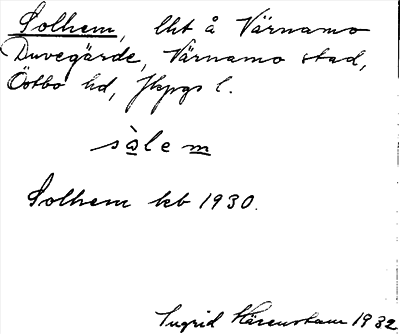 Solhem, lht å Värnamo
Duvegärde, Värnamo stad,
Östbo hd, Jkpgs l.
sàlem
Solhem kb 1930.
Ingrid Härenstam 1932